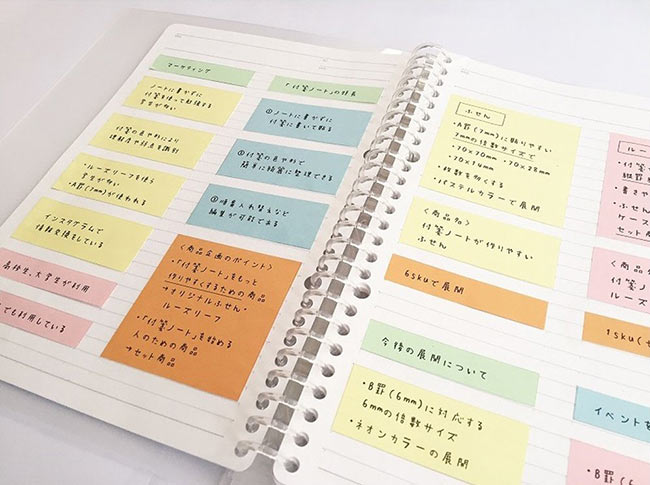 マーケティング
ノートに書かずに
付箋を使って勉強する
学生が多い
付箋の色や形により
理解度や弱点を識別
・ルーズリーフを使う
学生が多い
・A罫(7mm)が使われる
インスタグラムで
情報交換をしている
高校生、大学生が利用
でも利用している
「付箋ノート」の特長
①ノートに書かずに
付箋に書いて貼る
②付箋の色や形で
簡単に綺麗に整理できる
③順番入れ替えなど
編集が可能である
〈商品企画のポイント〉
・「付箋ノート」をもっと
作りやすくするための商品
→オリジナルふせん・
ルーズリーフ
・「付箋ノート」を始める
人のための商品
→セット商品
ふせん
・A罫(7mm)に貼りやすい
7mmの倍数サイズで
・70×70mm ・70×28mm
・70×14mm
・枚数を多くする
・パステルカラーで展開
〈商品名〉
付箋ノートが作りやすい
ふせん
6skuで展開
今後の展開について
・B罫(6mm)に対応する
6mmの倍数サイズ
・ネオンカラーの展開
ルーズ
・付箋
・書きや
・ふせん
ケース
セット商
〈商品
付箋ノ
ルーズ
1sku(セ
イベントを
・B罫(6